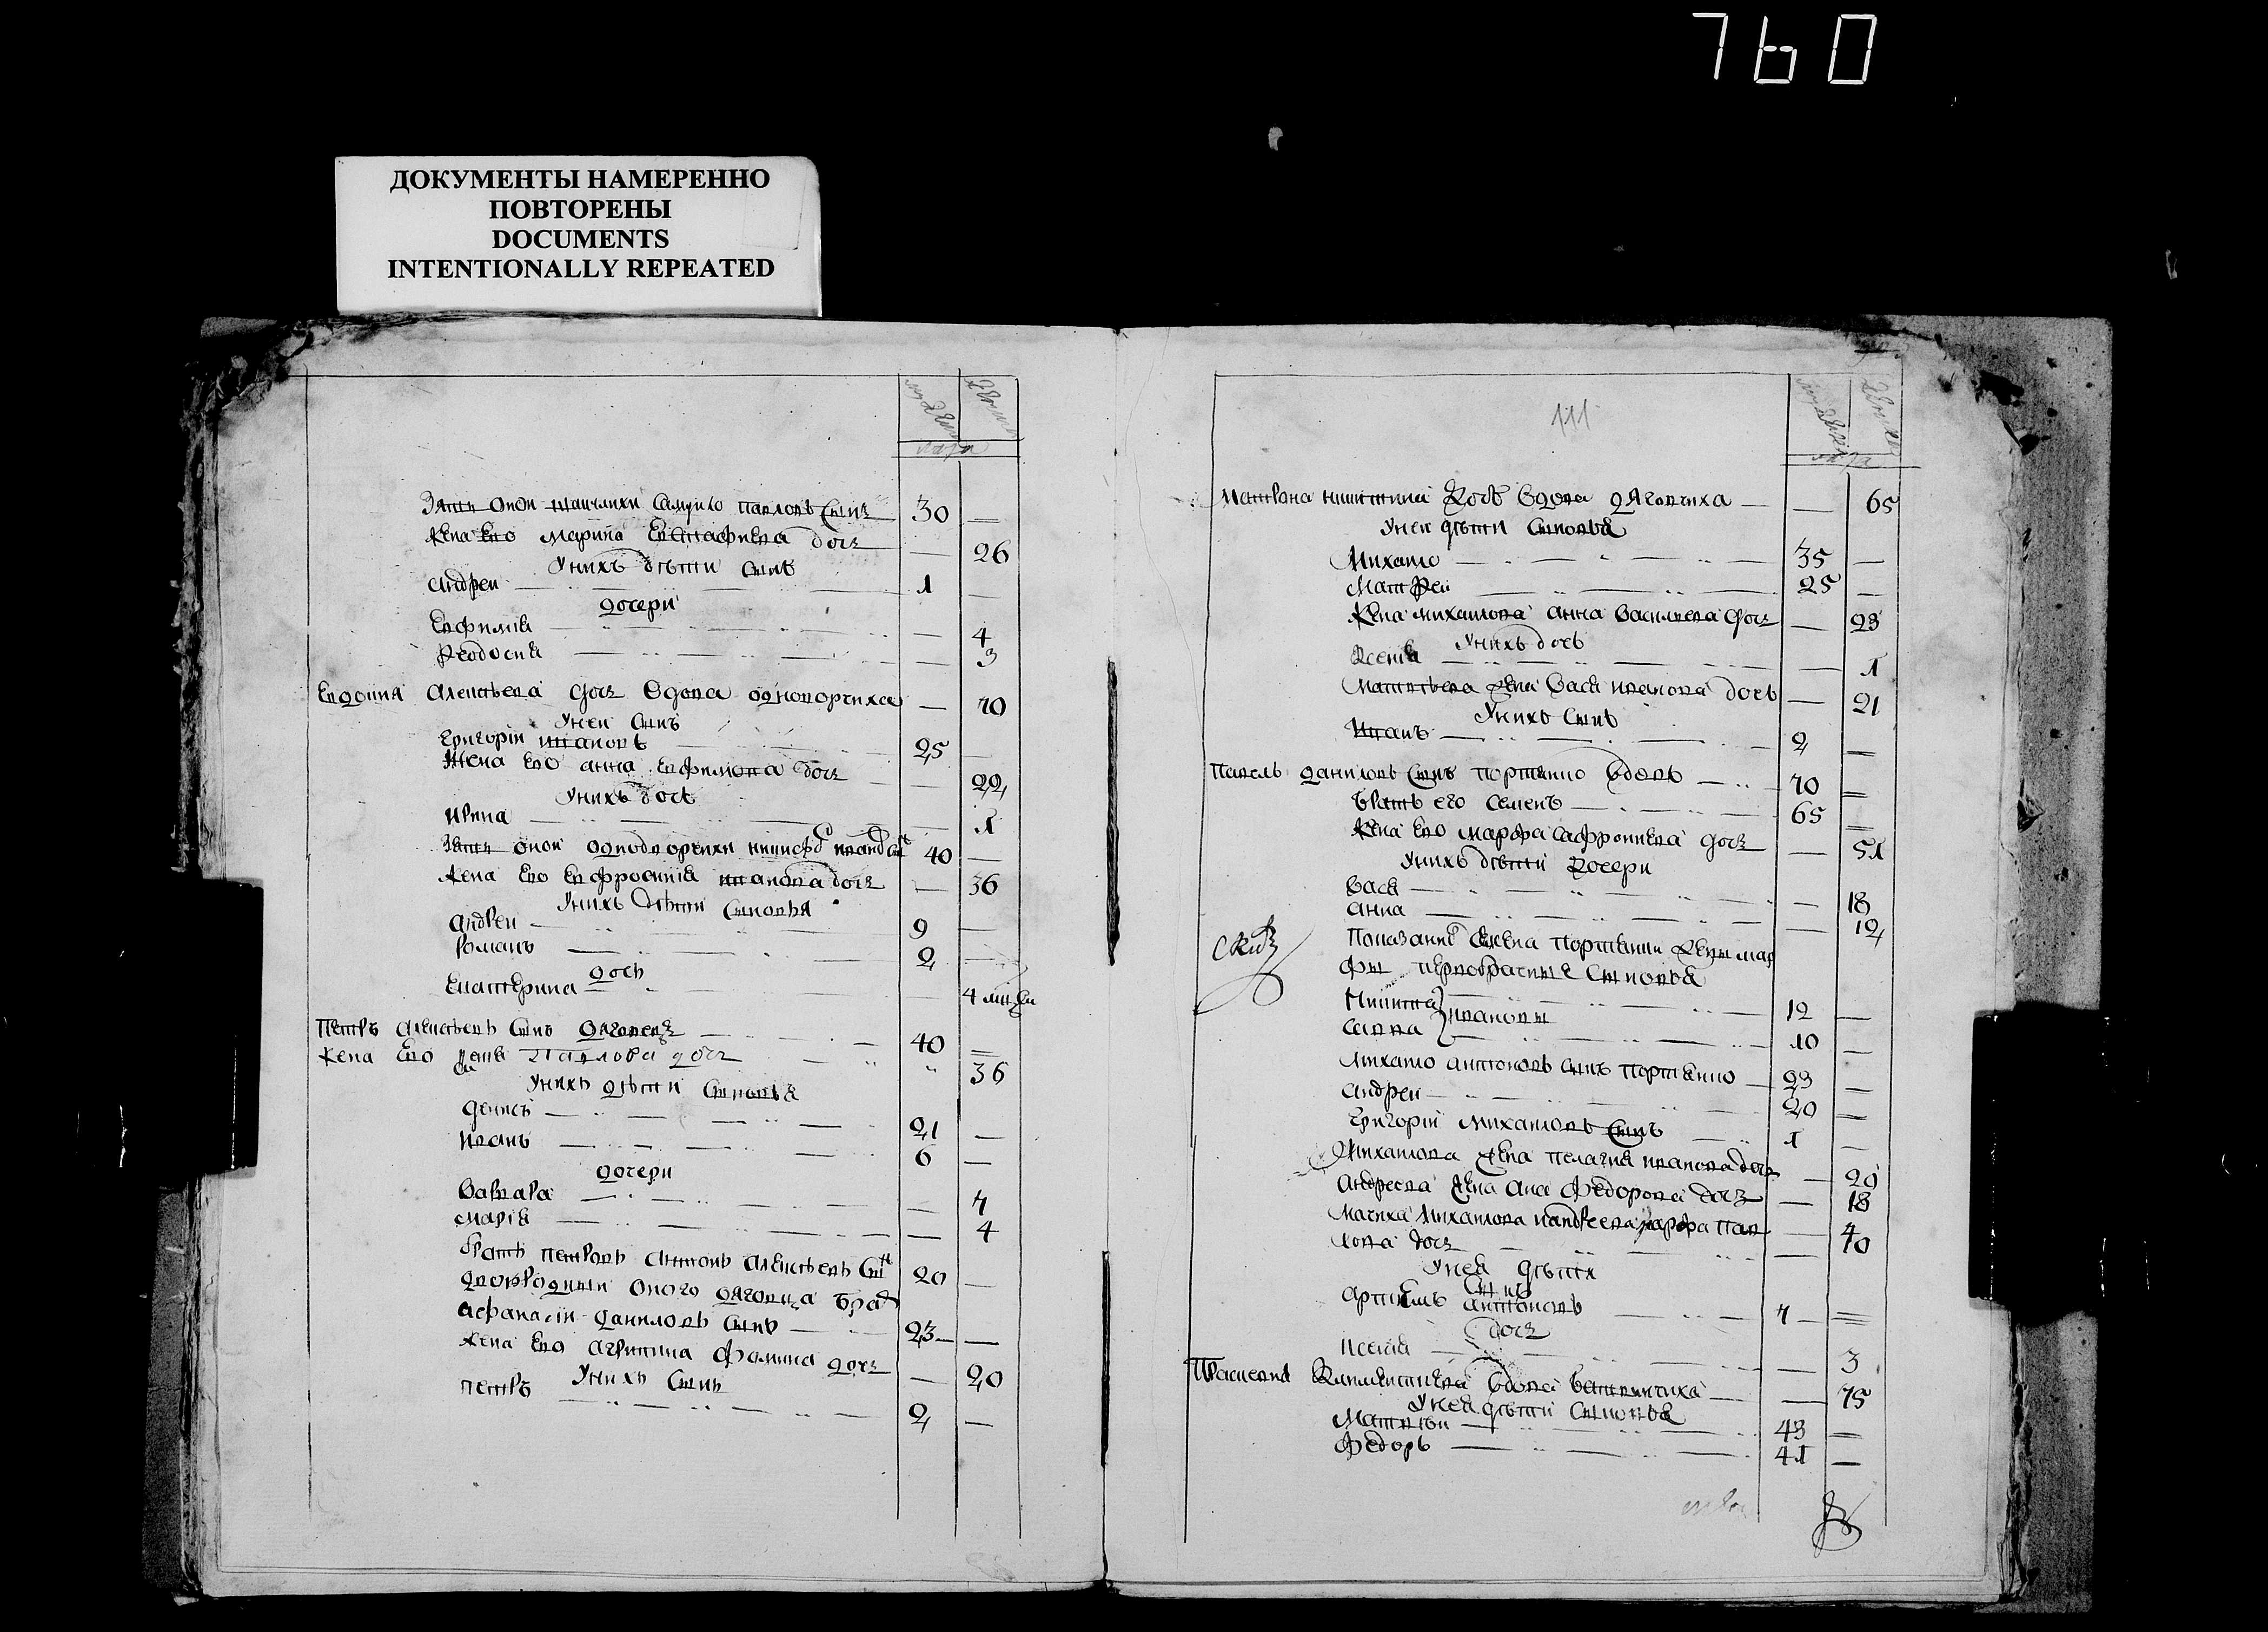 760
ДОКУМЕНТЫ НАМЕРЕННО
ПОВТОРЕНЫ
DOCUMENTS
INTENTIONALLY REPEATED
мужеска
женска
пола
Зять оной Самуило Павловъ сынъ 30 —
Жена Ево Марина Евстафиева дочь — 26
У нихъ дѣти сынъ
Андреи 1 —
дочери
Евфимія — 4
Феодосия — 3
Евдокия Алексѣева дочь вдова — 70
У неи сынъ
Григоріи Ивановъ 25 —
Жена Ево Анна Евфимова дочь — 22
У нихъ дочь
Ирена — 1
Зять оной 40 —
Жена Ево Евфросиния Иванова дочь — 36
У нихъ дѣти сыновья
Андреи 9 —
Романъ 2 —
дочь
Екатерина — 4
Петръ Алексѣевъ сынъ Дяговецъ 40 —
Жена Ево Павлова дочь " 36
У нихъ дѣти сыновья
Денисъ 21 —
Иванъ 6 —
дочери
Варвара — 7
Марія — 4
Братъ Петровъ Антонъ Алексѣевъ сынъ 20 —
Двоюродныи оного Дяговца братъ
Афанасіи Даниловъ сынъ 23 —
Жена Ево Агрипина Фомина дочь — 20
У нихъ сынъ
Петръ 2 —
111
мужеска
женска
пола
Матрона Никитина дочь вдова Дяговчиха — 65
У неи дѣти сыновья
Михаило 35 —
Матфеи 25 —
Жена Михаилова Анна Василиева дочь — 23
У нихъ дочь
Ксения — 1
Матвѣева жена Вася Иванова дочь — 21
У нихъ сынъ
Иванъ 2 —
Павелъ Даниловъ сынъ Портянко вдовъ 70 —
Братъ его Семенъ 65 —
Жена Ево Марфа Сафрониева дочь — 51
У нихъ дѣти дочери
Вася — 18
Анна — 12
Показанного Семена Портянки жены Мар
фы первобрачныя сыновья
Никита 12 —
Савва } Ивановы 10 —
Михаило Антоновъ сынъ Портянко 23 —
Андреи 20 —
Григоріи Михаиловъ сынъ 1 —
Михаилова жена Пелагия Иванова дочь — 20
Андреева жена Анна Федорова дочь — 18
Мачиха Михаилова и Андреева Марфа Пав
лова дочь — 40
У нея дѣти
сынъ
Артемъ Антоновъ 7 —
дочь
Ксения — 3
Прасковия Климентиева вдова — 75
У нея дѣти сыновья
Матвѣи 43 —
Федоръ 41 —